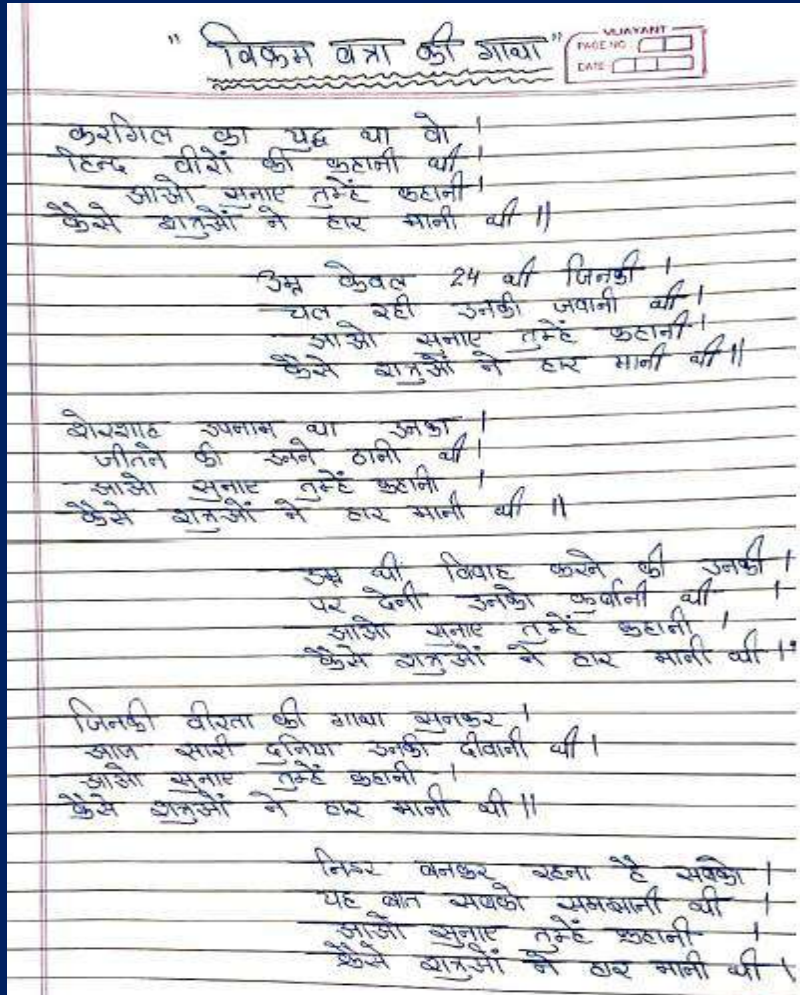 " विक्रम बत्रा की गाथा "
VIJAYANT
PAGE NO.
DATE
करगिल का युद्ध था वो ।
हिन्द वीरों की कहानी थी ।
आओ सुनाए तुम्हें कहानी ।
कैसे शत्रुओं ने हार मानी थी ॥
उम्र केवल 24 थी जिनकी ।
चल रही उनकी जवानी थी ।
आओ सुनाए तुम्हें कहानी ।
कैसे शत्रुओं ने हार मानी थी ॥
शेरशाह उपनाम था उनका ।
जीतने की उनने ठानी थी ।
आओ सुनाए तुम्हें कहानी ।
कैसे शत्रुओं ने हार मानी थी ॥
उम्र थी विवाह करने की उनकी ।
पर देनी उनको कुर्बानी थी ।
आओ सुनाए तुम्हें कहानी ।
कैसे शत्रुओं ने हार मानी थी ।
जिनकी वीरता की गाथा सुनकर ।
आज सारी दुनिया उनकी दीवानी थी ।
आओ सुनाए तुम्हें कहानी ।
कैसे शत्रुओं ने हार मानी थी ॥
निडर बनकर रहना है सबको ।
यह बात सबको समझानी थी ।
आओ सुनाए तुम्हें कहानी ।
कैसे शत्रुओं ने हार मानी थी ।